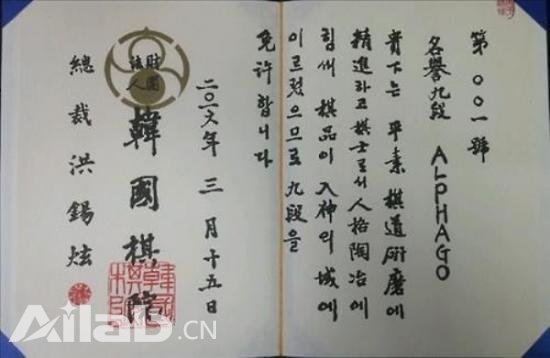 第〇〇一號
名譽九段 ALPHAGO
貴下는 平素 棋道硏磨에
精進하고 棋士로서 人格陶冶에
힘써 棋品이 入神의 域에
이르렀으므로 九段을
免許합니다
二〇一六年 三月十五日
財團法人 韓國棋院
總裁 洪錫炫
AiLab.CN